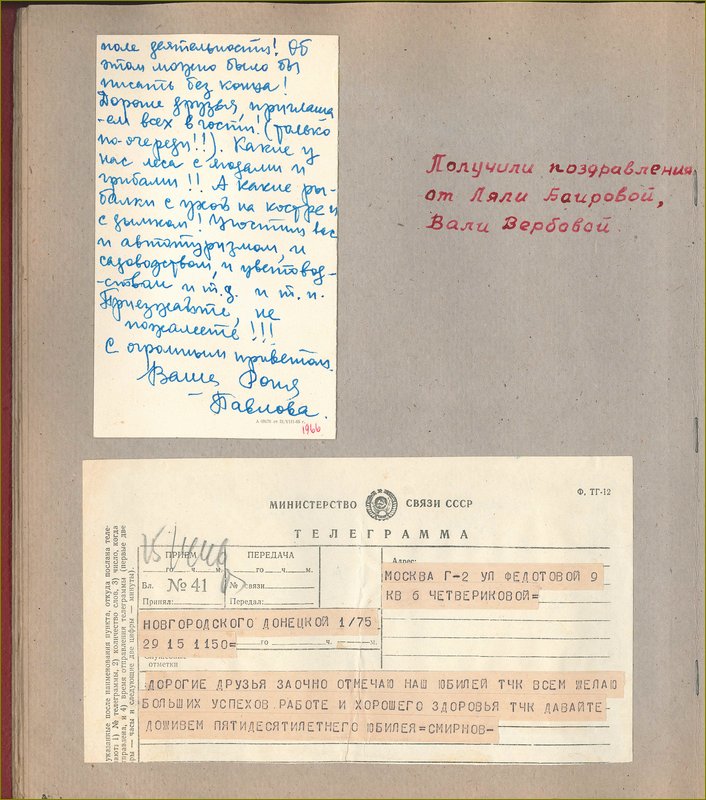 поле деятельности! Об
этом можно было бы
писать без конца!
Дорогие друзья, приглаша
-ем всех в гости! (только
по-очереди!!). Какие у
нас леса с ягодами и
грибами!! А какие ры-
балки с ухой на костре и
с дымком! Угостим вас
и автотуризмом, и
садоводством, и цветовод-
-ством и т.д. и т.п.
Приезжайте, не
пожалеете!!!
С огромным приветом.
Ваша
Павлова.
1966
Получили поздравления
от Ляли Баировой,
Вали Вербовой.
Ф. ТГ-12
МИНИСТЕРСТВО СВЯЗИ СССР
ТЕЛЕГРАММА
ПРИЕМ
го ч. м.
Вл. № 41
Принял:
ПЕРЕДАЧА
го ч. м.
№ связи
Передал:
Адрес:
МОСКВА Г-2 УЛ ФЕДОТОВОЙ 9
КВ 6 ЧЕТВЕРИКОВОЙ=
НОВГОРОДСКОГО ДОНЕЦКОЙ 1/75
29 15 1150= го ч. м.
Служебные
отметки
ДОРОГИЕ ДРУЗЬЯ ЗАОЧНО ОТМЕЧАЮ НАШ ЮБИЛЕЙ ТЧК ВСЕМ ЖЕЛАЮ
БОЛЬШИХ УСПЕХОВ РАБОТЕ И ХОРОШЕГО ЗДОРОВЬЯ ТЧК ДАВАЙТЕ
ДОЖИВЕМ ПЯТИДЕСЯТИЛЕТНЕГО ЮБИЛЕЯ=СМИРНОВ-
указанные после наименования пункта, откуда послана теле-
1) № телеграммы, 2) количество слов, 3) число, когда
и 4) время отправления телеграммы (первые две
— часы и следующие две цифры — минуты).